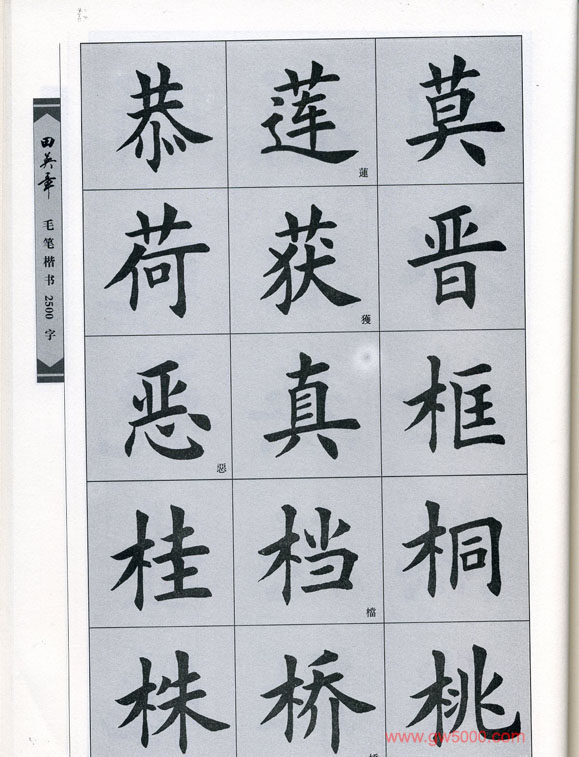 田英章
毛笔楷书2500字
恭莲莫
蓮
荷获晋
獲
恶真框
惡
桂档桐
檔
株桥桃
www.gw5000.com